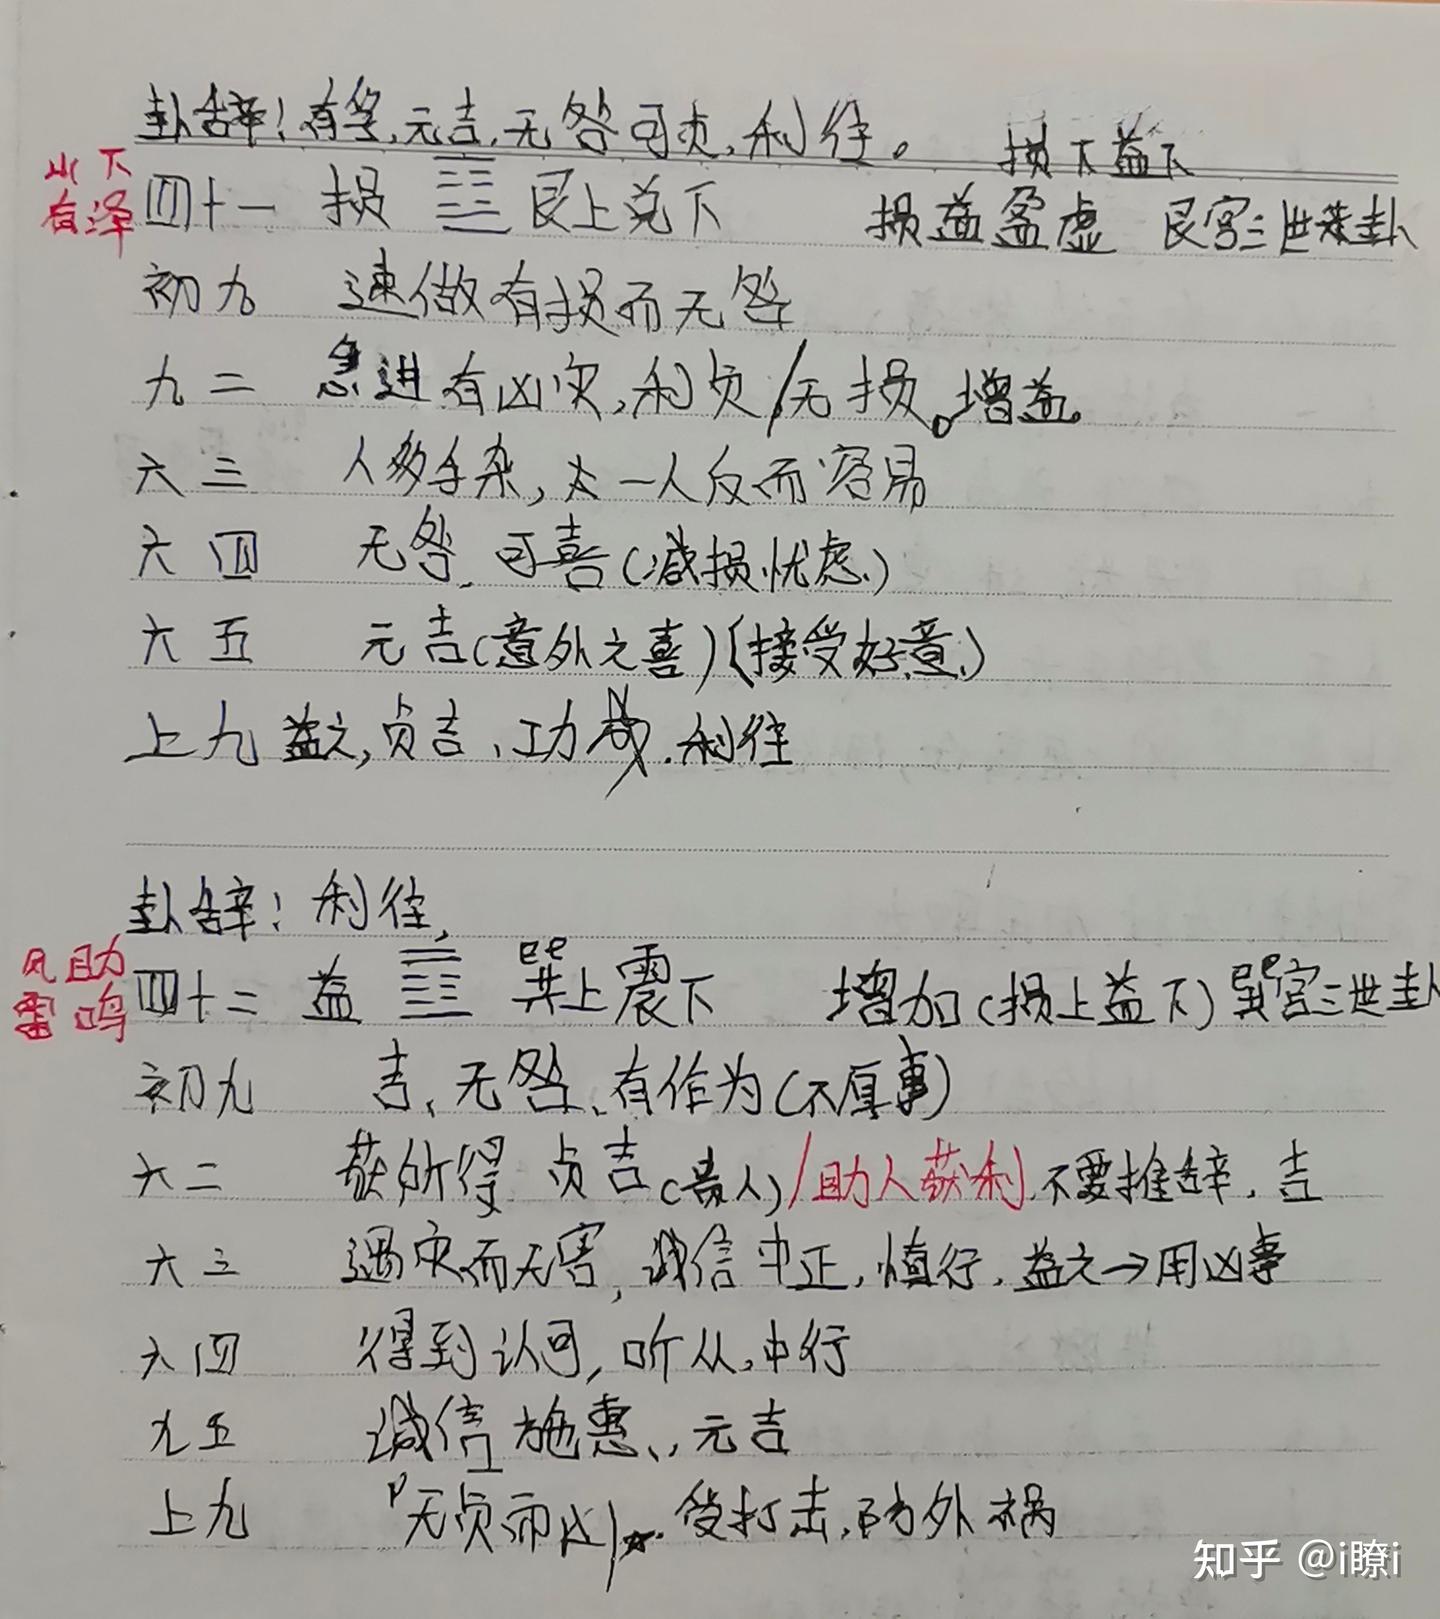 卦辞：有孚，元吉，无咎可贞，利往。
损下益下
山下有泽
四十一 损 ䷨ 艮上兑下 损益盈虚 艮宫三世卦
初九 速做有损而无咎
九二 急进有凶灾，利贞/无损。增益。
六三 人多手杂，一人反而容易
六四 无咎，可喜（减损忧虑）
六五 元吉（意外之喜）（接受好意）
上九 益之，贞吉、功成，利往
卦辞：利往，
风助雷鸣
四十二 益 ䷩ 巽上震下 增加（损上益下）巽宫三世卦
初九 吉、无咎、有作为（不厚事）
六二 获所得 贞吉（贵人）/助人获利，不要推辞，吉
六三 遇灾而无害，诚信中正，慎行，益之→用凶事
六四 得到认可，听从，中行
九五 诚信施惠，元吉
上九 无贞而凶，受打击，防外祸
知乎 @i瞭i